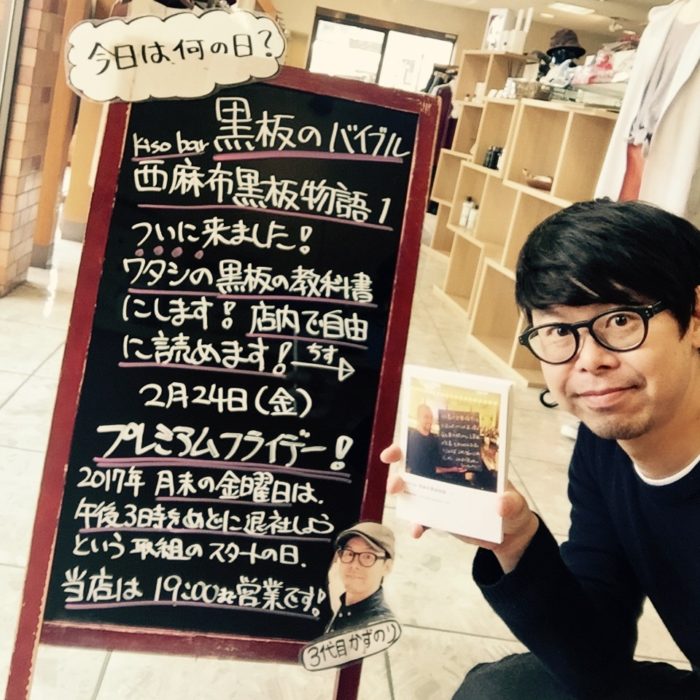 今日は何の日?
kiso bar 黒板のバイブル
西麻布黒板物語1
ついに来ました!
ワタシの黒板の教科書
にします! 店内で自由
に読めます! ちす
2月24日(金)
プレミアムフライデー!
2017年 月末の金曜日は、
午後3時をめどに退社しよう
という取組のスタートの日.
当店は 19:00まで営業です!
3代目かずのり